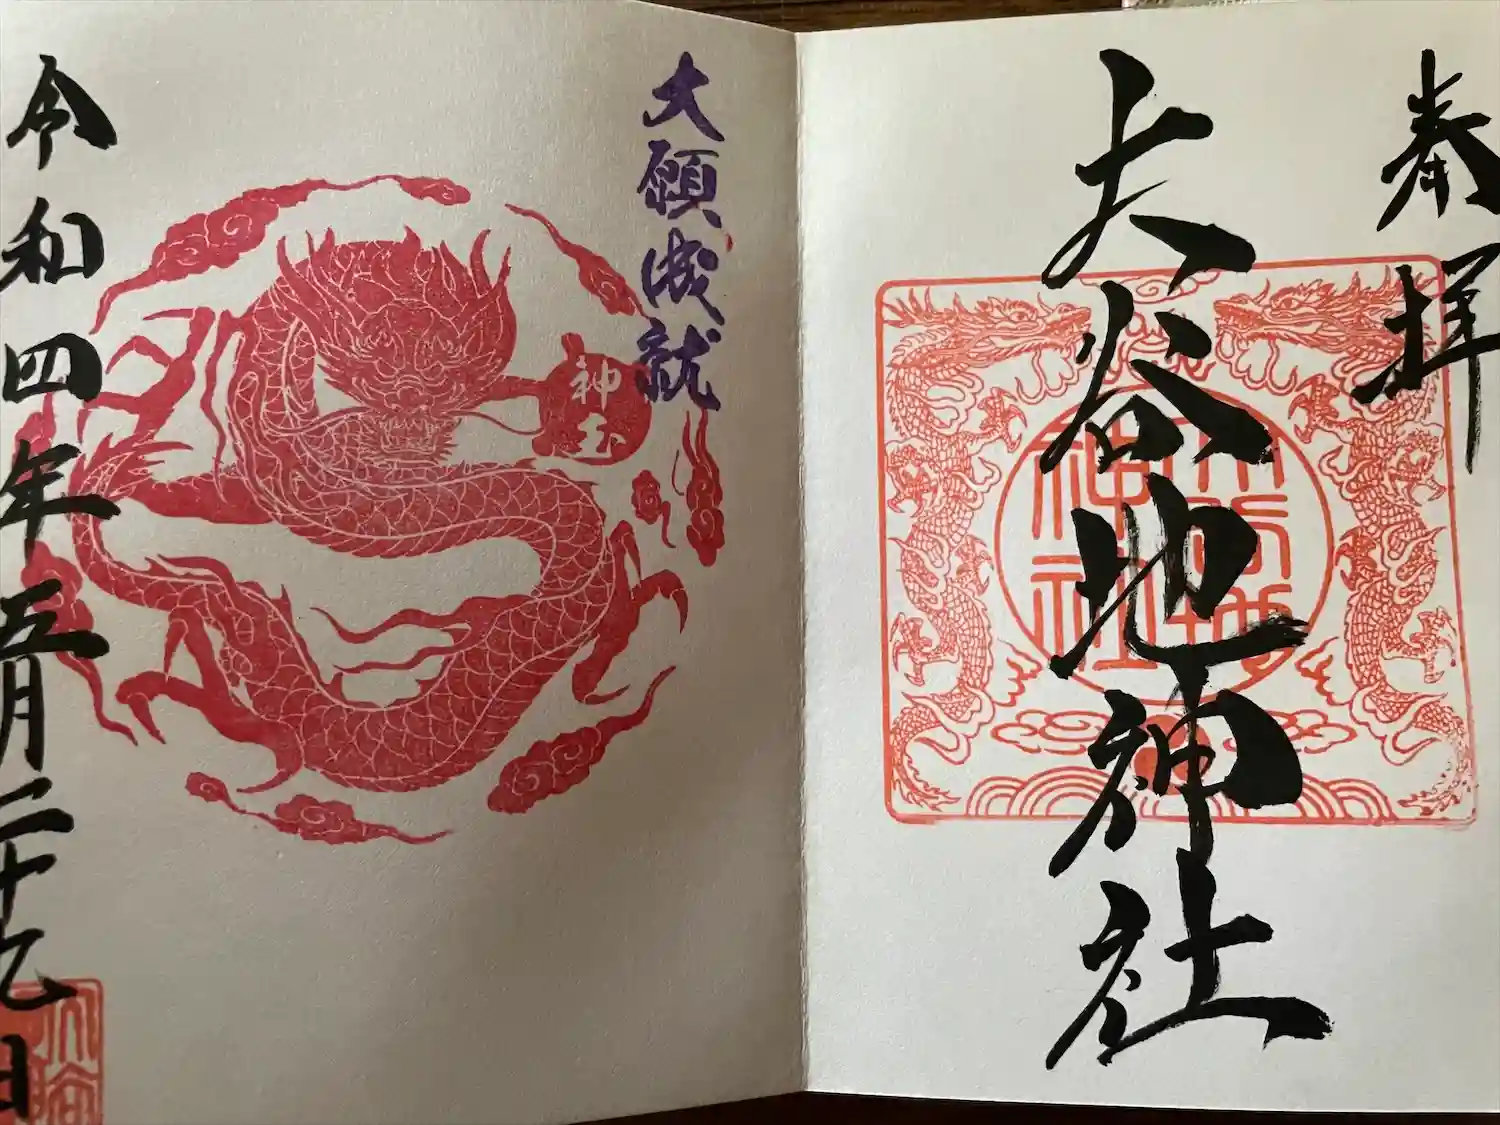 奉拝
大谷地神社
大谷地
神社
大願成就
神玉
令和四年五月二十九日